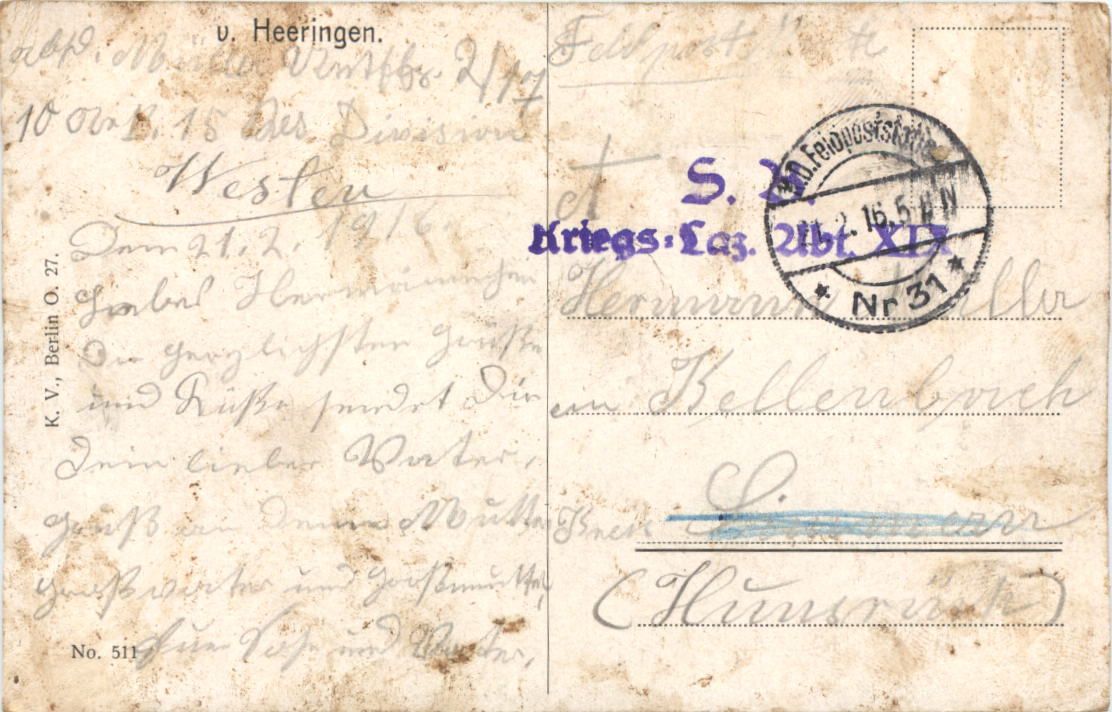 v. Heeringen.
Müller 2/
10 15 Res Division
Westen
Den 21.2. 1916.
Liebes Hermännchen
Die herzlichsten Grüße
und Küße sendet Dir
Dein lieber Vater,
Gruß an Deine Mutter
Großvater und Großmutter,
Euer Sohn und Vater.
K. V., Berlin O. 27.
No. 511
Feldpostkarte
S. B.
Kriegs-Laz. Abt. XIX
K.D. Feldpoststation
21.2.16.5-6N
* Nr 31 *
An
Hermann Müller
in Kellenbach
Kreis Simmern
(Hunsrück)